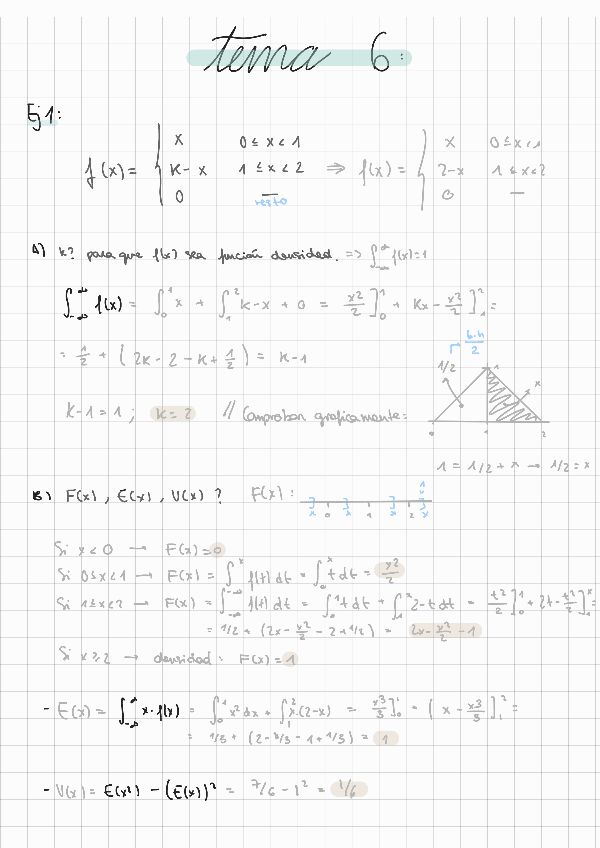 tema 6:
Ej 1:
f(x) = { x 0 ≤ x < 1
k - x 1 ≤ x < 2
0 resto
⇒ f(x) = { x 0 ≤ x < 1
2-x 1 ≤ x < 2
0 —
A) k? para que f(x) sea función densidad. ⇒ ∫_{-∞}^{∞} f(x) = 1
∫_{-∞}^{∞} f(x) = ∫_0^1 x + ∫_1^2 k-x + 0 = x²/2 ]_0^1 + kx - x²/2 ]_1^2 =
= 1/2 + (2k - 2 - k + 1/2) = k-1
b·h/2
1/2 1 x
k-1 = 1 ; k = 2 // Comprobar graficamente:
0 1 2
1 = 1/2 + x → 1/2 = x
B) F(x), E(x), V(x) ? F(x):
1
x 0 x 1 x 2 x
Si x < 0 → F(x) = 0
Si 0 ≤ x < 1 → F(x) = ∫_{-∞}^x f(t) dt = ∫_0^x t dt = x²/2
Si 1 ≤ x < 2 → F(x) = ∫_{-∞}^x f(t) dt = ∫_0^1 t dt + ∫_1^x 2-t dt = t²/2 ]_0^1 + 2t - t²/2 ]_1^x =
= 1/2 + (2x - x²/2 - 2 + 1/2) = 2x - x²/2 - 1
Si x ≥ 2 → densidad: F(x) = 1
- E(x) = ∫_{-∞}^{∞} x·f(x) = ∫_0^1 x² dx + ∫_1^2 x·(2-x) = x³/3 ]_0^1 + (x - x³/3 ]_1^2 =
= 1/3 + (2 - 8/3 - 1 + 1/3) = 1
- V(x) = E(x²) - (E(x))² = 7/6 - 1² = 1/6